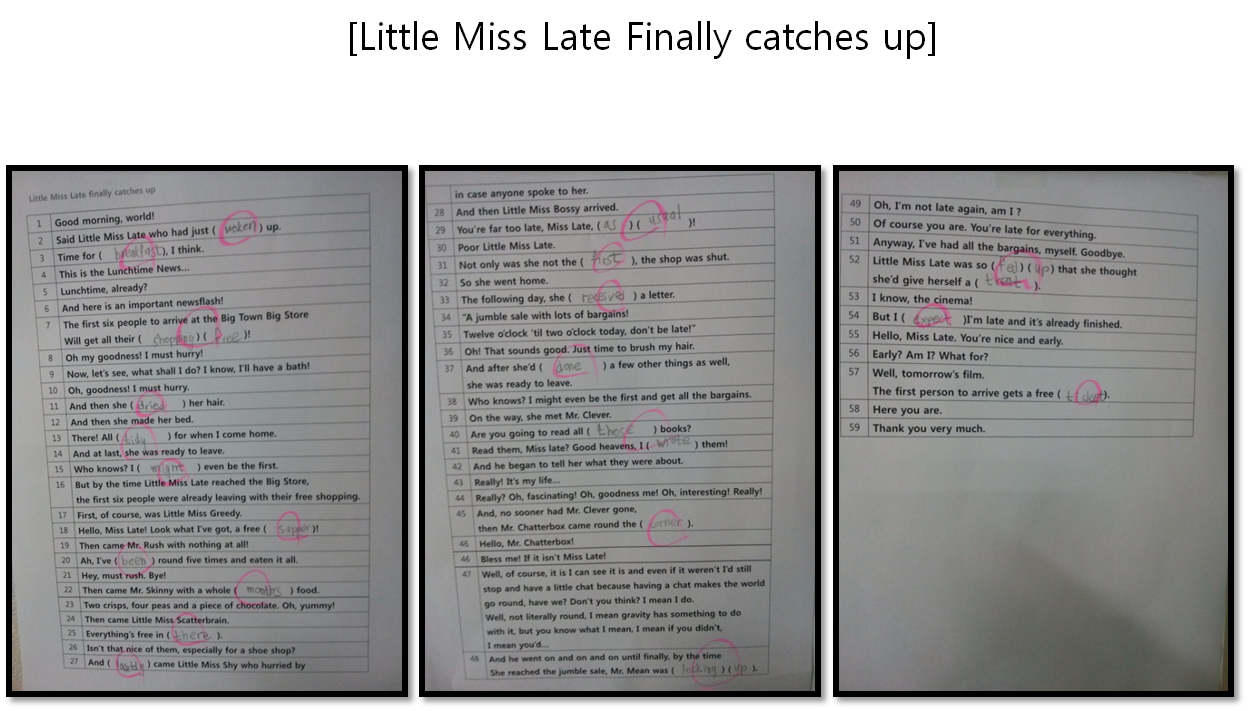 [Little Miss Late Finally catches up]
Little Miss Late finally catches up
1 Good morning, world!
2 Said Little Miss Late who had just ( woken ) up.
3 Time for ( breakfast ), I think.
4 This is the Lunchtime News...
5 Lunchtime, already?
6 And here is an important newsflash!
7 The first six people to arrive at the Big Town Big Store
Will get all their ( shopping ) ( free )!
8 Oh my goodness! I must hurry!
9 Now, let's see, what shall I do? I know, I'll have a bath!
10 Oh, goodness! I must hurry.
11 And then she ( dried ) her hair.
12 And then she made her bed.
13 There! All ( tidy ) for when I come home.
14 And at last, she was ready to leave.
15 Who knows? I ( might ) even be the first.
16 But by the time Little Miss Late reached the Big Store,
the first six people were already leaving with their free shopping.
17 First, of course, was Little Miss Greedy.
18 Hello, Miss Late! Look what I've got, a free ( supper )!
19 Then came Mr. Rush with nothing at all!
20 Ah, I've ( been ) round five times and eaten it all.
21 Hey, must rush. Bye!
22 Then came Mr. Skinny with a whole ( months ) food.
23 Two crisps, four peas and a piece of chocolate. Oh, yummy!
24 Then came Little Miss Scatterbrain.
25 Everything's free in ( there ).
26 Isn't that nice of them, especially for a shoe shop?
27 And ( lastly ) came Little Miss Shy who hurried by
in case anyone spoke to her.
28 And then Little Miss Bossy arrived.
29 You're far too late, Miss Late, ( as ) ( usual )!
30 Poor Little Miss Late.
31 Not only was she not the ( first ), the shop was shut.
32 So she went home.
33 The following day, she ( received ) a letter.
34 "A jumble sale with lots of bargains!
35 Twelve o'clock 'til two o'clock today, don't be late!"
36 Oh! That sounds good. Just time to brush my hair.
37 And after she'd ( done ) a few other things as well,
she was ready to leave.
38 Who knows? I might even be the first and get all the bargains.
39 On the way, she met Mr. Clever.
40 Are you going to read all ( those ) books?
41 Read them, Miss late? Good heavens, I ( wrote ) them!
42 And he began to tell her what they were about.
43 Really! It's my life...
44 Really? Oh, fascinating! Oh, goodness me! Oh, interesting! Really!
45 And, no sooner had Mr. Clever gone,
then Mr. Chatterbox came round the ( corner ).
46 Hello, Mr. Chatterbox!
46 Bless me! If it isn't Miss Late!
47 Well, of course, it is I can see it is and even if it weren't I'd still
stop and have a little chat because having a chat makes the world
go round, have we? Don't you think? I mean I do.
Well, not literally round, I mean gravity has something to do
with it, but you know what I mean, I mean if you didn't,
I mean you'd...
48 And he went on and on and on until finally, by the time
She reached the jumble sale, Mr. Mean was ( locking ) ( up ).
49 Oh, I'm not late again, am I ?
50 Of course you are. You're late for everything.
51 Anyway, I've had all the bargains, myself. Goodbye.
52 Little Miss Late was so ( fed ) ( up ) that she thought
she'd give herself a ( treat ).
53 I know, the cinema!
54 But I ( expect )I'm late and it's already finished.
55 Hello, Miss Late. You're nice and early.
56 Early? Am I? What for?
57 Well, tomorrow's film.
The first person to arrive gets a free ( ticket ).
58 Here you are.
59 Thank you very much.